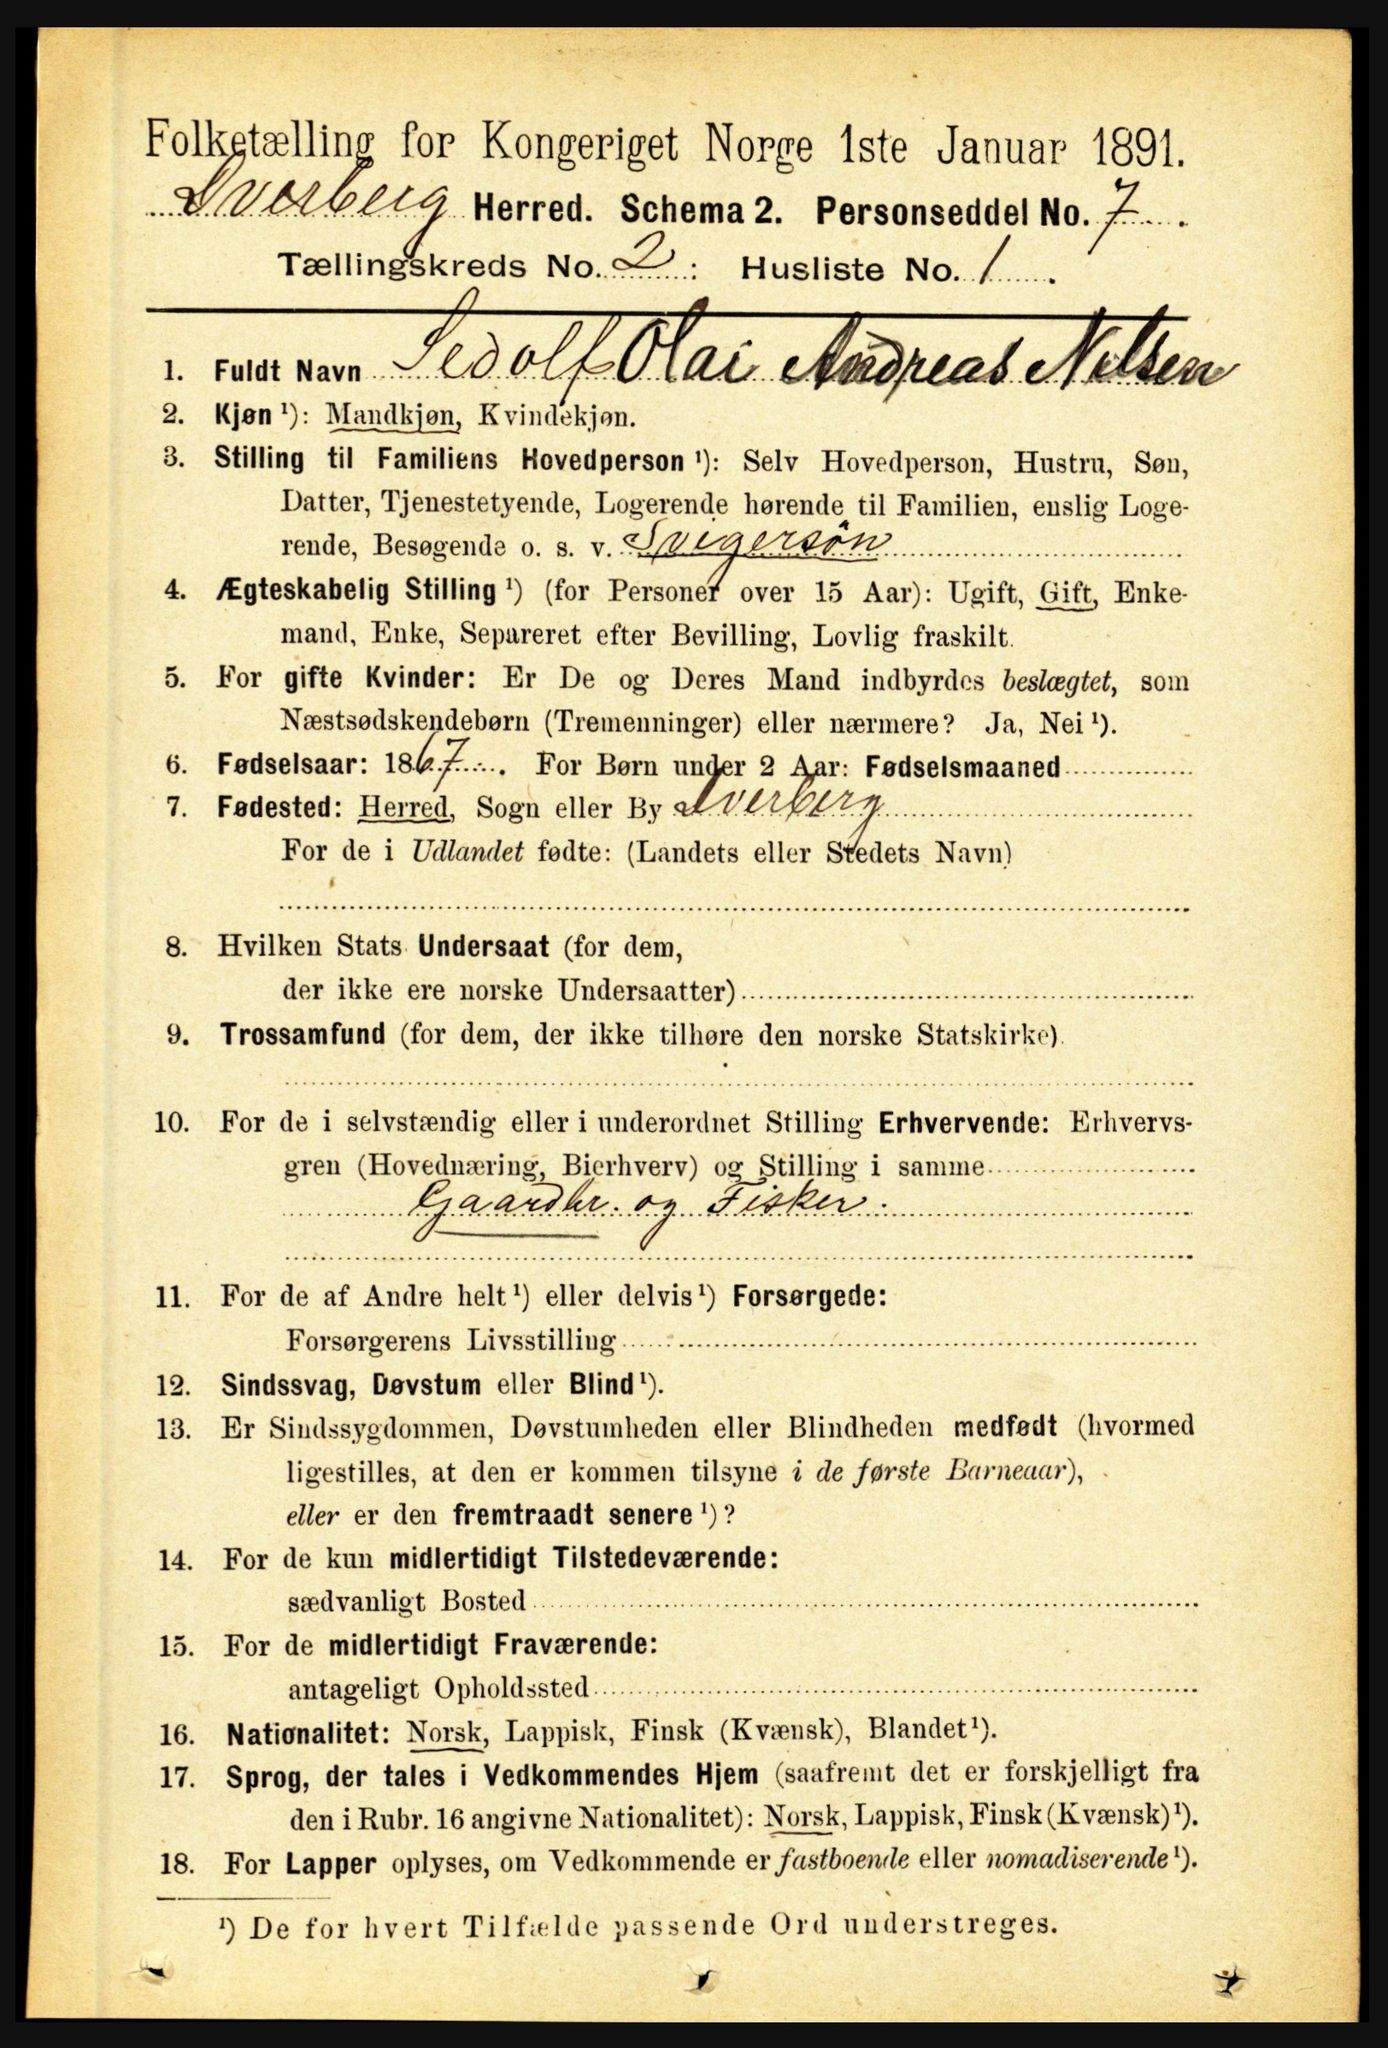 Folketælling for Kongeriget Norge 1ste Januar 1891.
Dverberg Herred. Schema 2. Personseddel No. 7.
Tællingskreds No. 2: Husliste No. 1.
1. Fuldt Navn Sedolf Olai Andreas Nilsen
2. Kjøn ¹): Mandkjøn, Kvindekjøn.
3. Stilling til Familiens Hovedperson ¹): Selv Hovedperson, Hustru, Søn,
Datter, Tjenestetyende, Logerende hørende til Familien, enslig Loge-
rende, Besøgende o. s. v. Svigersön
4. Ægteskabelig Stilling ¹) (for Personer over 15 Aar): Ugift, Gift, Enke-
mand, Enke, Separeret efter Bevilling, Lovlig fraskilt.
5. For gifte Kvinder: Er De og Deres Mand indbyrdes beslægtet, som
Næstsødskendebørn (Tremenninger) eller nærmere? Ja, Nei ¹).
6. Fødselsaar: 1867. For Børn under 2 Aar: Fødselsmaaned
7. Fødested: Herred, Sogn eller By Dverberg
For de i Udlandet fødte: (Landets eller Stedets Navn)
8. Hvilken Stats Undersaat (for dem,
der ikke ere norske Undersaatter)
9. Trossamfund (for dem, der ikke tilhøre den norske Statskirke).
10. For de i selvstændig eller i underordnet Stilling Erhvervende: Erhvervs-
gren (Hovednæring, Bierhverv) og Stilling i samme
Gaardbr. og Fisker.
11. For de af Andre helt ¹) eller delvis ¹) Forsørgede:
Forsørgerens Livsstilling
12. Sindssvag, Døvstum eller Blind ¹).
13. Er Sindssygdommen, Døvstumheden eller Blindheden medfødt (hvormed
ligestilles, at den er kommen tilsyne i de første Barneaar),
eller er den fremtraadt senere ¹)?
14. For de kun midlertidigt Tilstedeværende:
sædvanligt Bosted
15. For de midlertidigt Fraværende:
antageligt Opholdssted
16. Nationalitet: Norsk, Lappisk, Finsk (Kvænsk), Blandet ¹).
17. Sprog, der tales i Vedkommendes Hjem (saafremt det er forskjelligt fra
den i Rubr. 16 angivne Nationalitet): Norsk, Lappisk, Finsk (Kvænsk) ¹).
18. For Lapper oplyses, om Vedkommende er fastboende eller nomadiserende ¹).
¹) De for hvert Tilfælde passende Ord understreges.